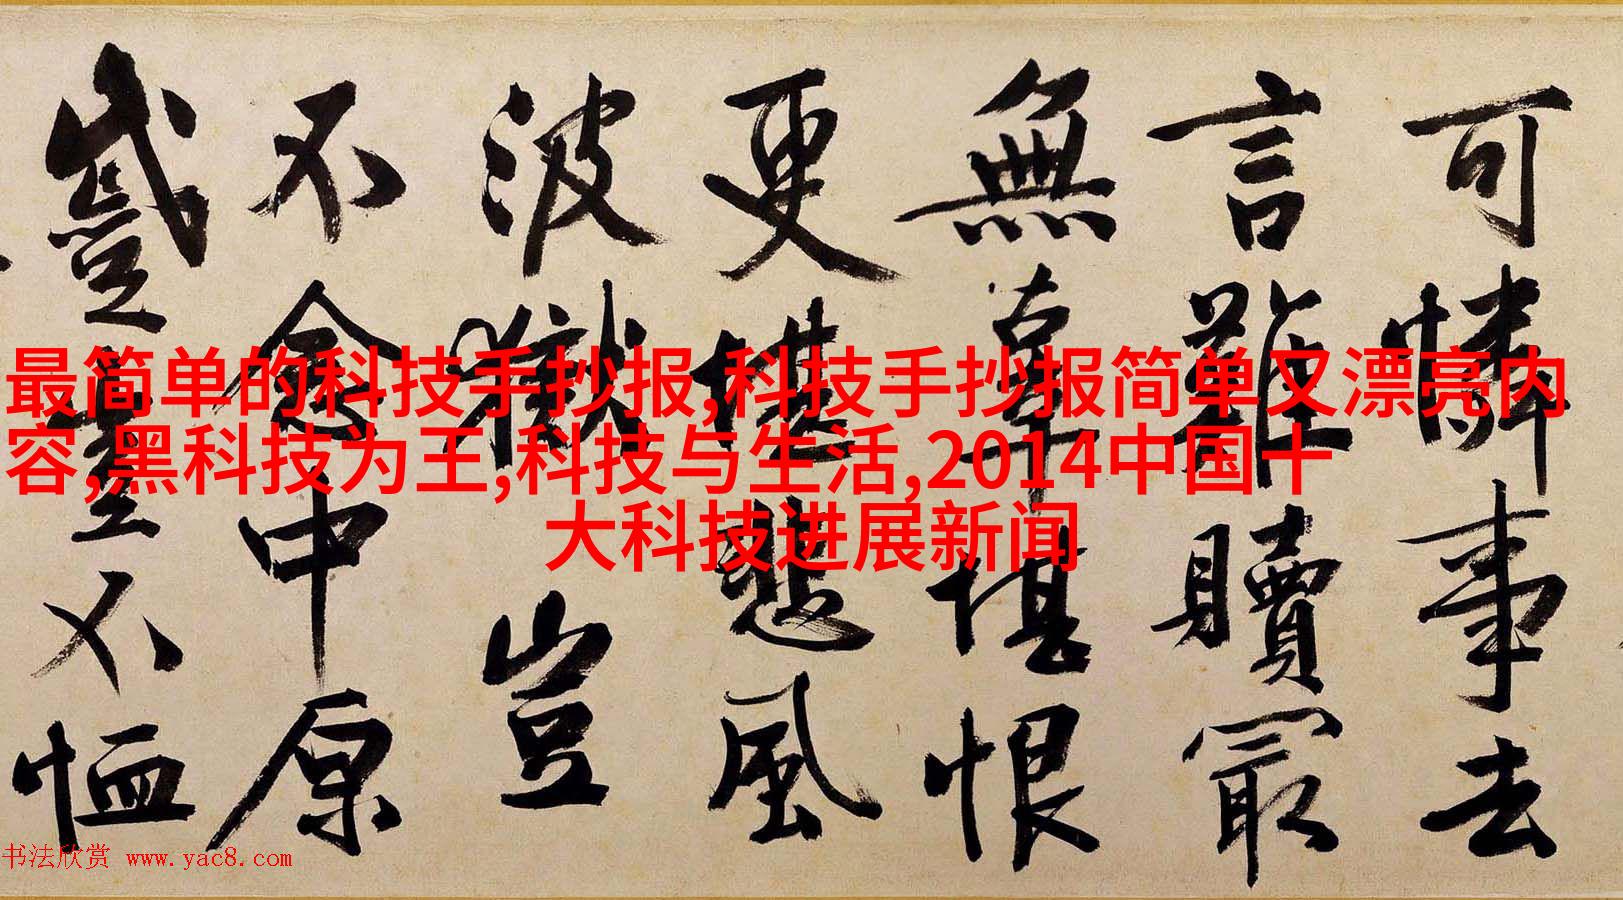 可憐事去
言難贖冣
無辜堪恨
更堪悲風
波獄豈
不念中原
蹙豈不恤
最简单的科技手抄报,科技手抄报简单又漂亮内
容,黑科技为王,科技与生活,2014中国十
大科技进展新闻
书法欣赏 www.yac8.com